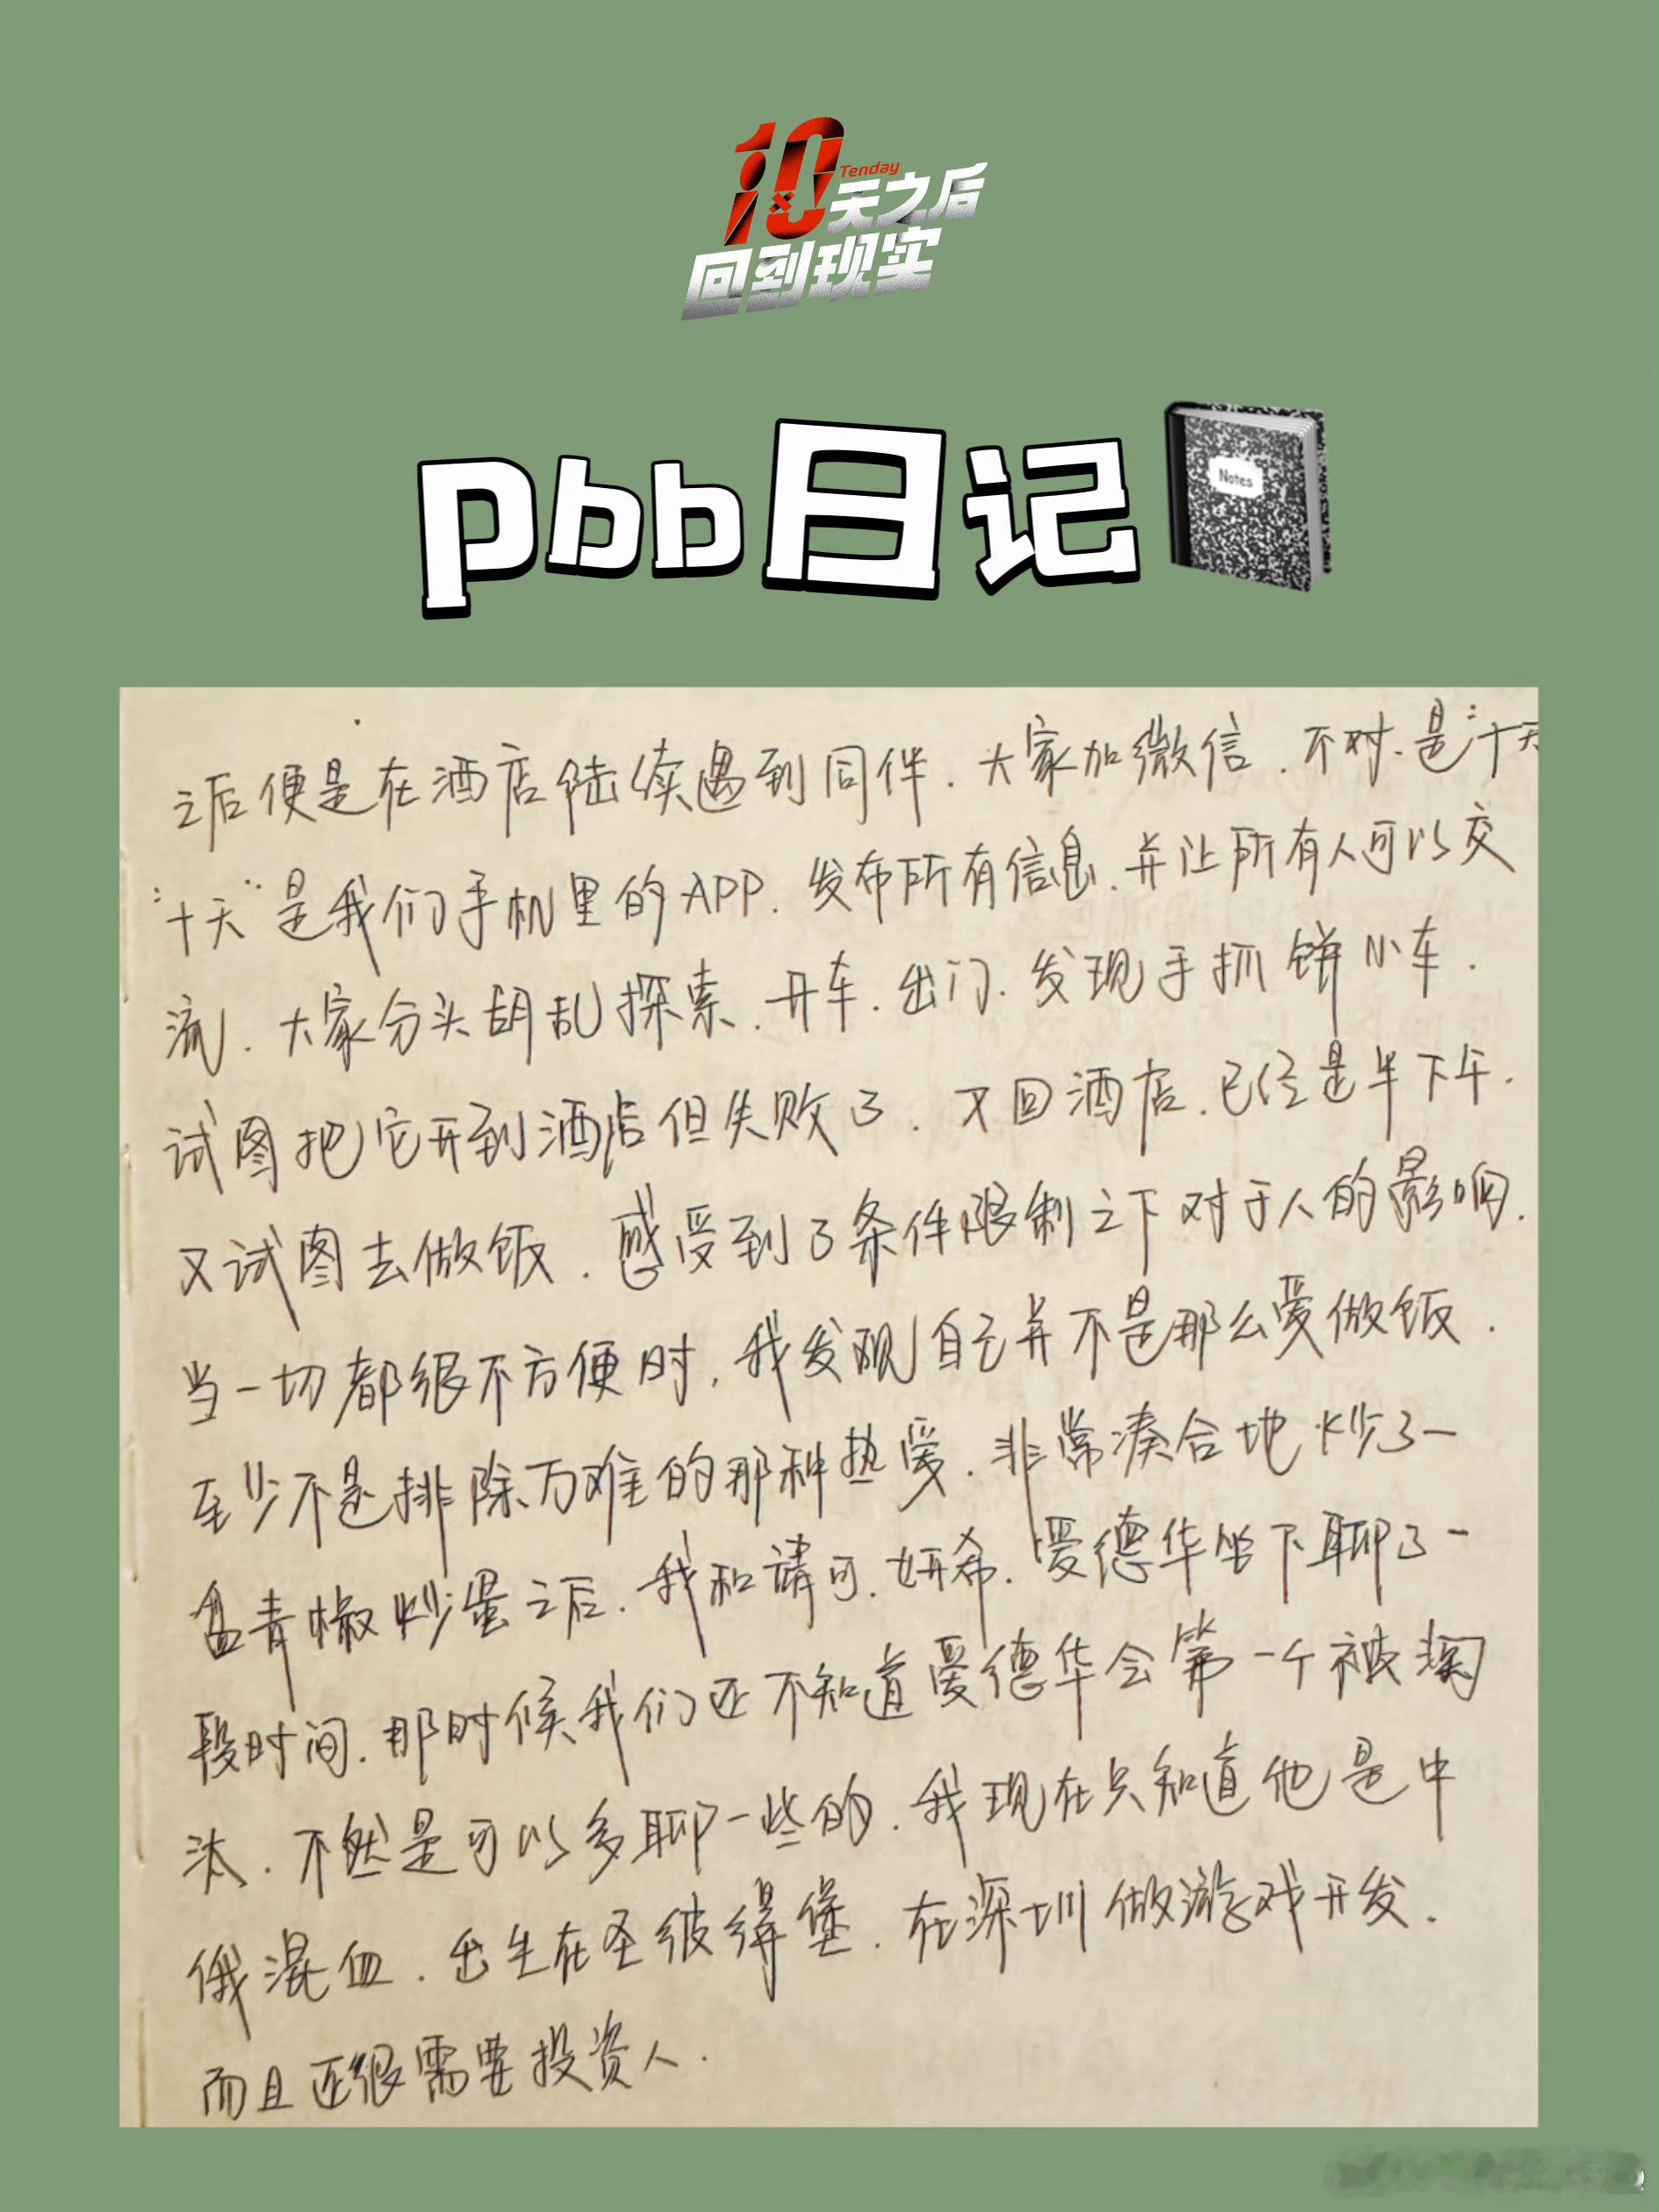 10
Tenday
天之后
回到现实
pbb日记
Notes
之后便是在酒店陆续遇到同伴.大家加微信.不对.是“十天
“十天”是我们手机里的APP.发布所有信息.并让所有人可以交
流.大家分头胡乱探索.开车.出门.发现手抓饼小车.
试图把它开到酒店但失败了.又回酒店.已经是半下午.
又试图去做饭.感受到了条件限制之下对于人的影响.
当一切都很不方便时,我发现自己并不是那么爱做饭.
至少不是排除万难的那种热爱.非常凑合地炒了一
盒青椒炒蛋之后.我和请可.妍希.爱德华坐下聊了一
段时间.那时候我们还不知道爱德华会第一个被淘
汰.不然是可以多聊一些的.我现在只知道他是中
俄混血.出生在圣彼得堡.在深圳做游戏开发.
而且还很需要投资人.